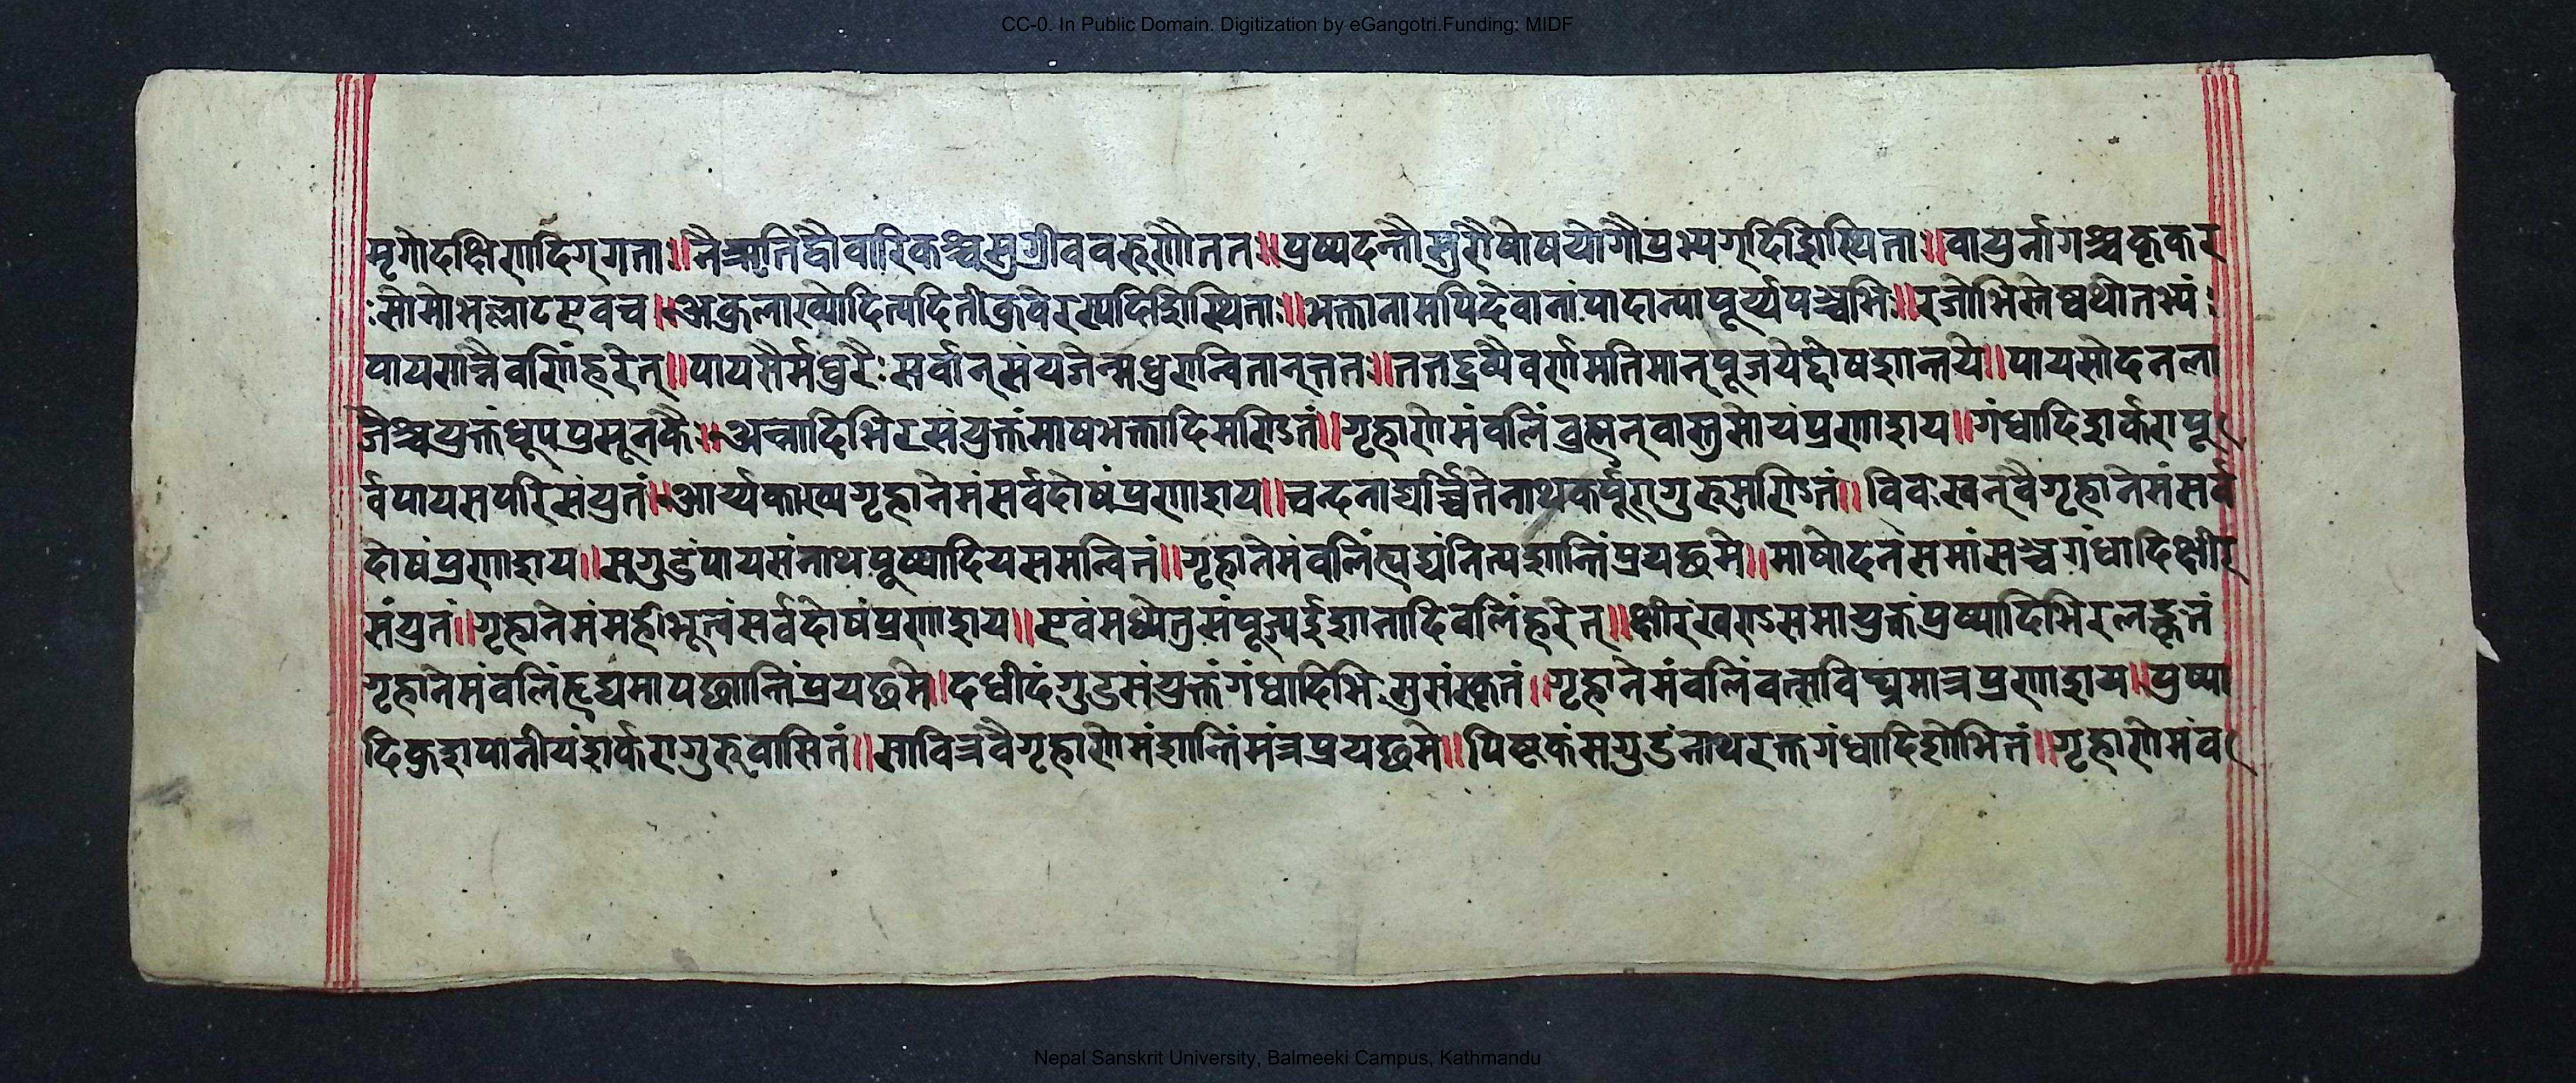 CC-0. In Public Domain. Digitization by eGangotri.Funding: MIDF
मृगोदक्षिणदिग्गता॥ नैऋतिदौवारिकश्चसुग्रीववरुणौततः॥ पुष्पदन्तौसुरौषोषयोगौप्रभ्यग्दिशिस्थिताः॥ वायुर्नागश्चकृकर
ःसोमोभल्लाटएवच॥ अकुलाख्योदित्यदितीकुवेरस्यदिशिस्थिताः॥ भक्तानामपिदेवानांपादान्यापूर्य्यपञ्चभिः॥ रजोभिस्तेष्वथोतभ्यं
पायसान्नैवलिंहरेत्॥ पायसैर्मधुरैःसर्वान्संयजेन्मधुरान्वितान्ततः॥ तत्तद्द्रव्यैवर्णमतिमान्पूजयेद्दोषशान्तये॥ पायसोदनला
जैश्चयुक्तंधूपप्रसूनकैः॥ अन्नादिभिरसंयुक्तंमाषभक्तादिमण्डितं॥ गृहाणेमंवलिंव्रह्मन्वास्तुसोयंप्रणाशय॥ गंधादिशर्करापू
र्वपायसपरिसंयुतं॥ आर्य्यकाख्यगृहानेमंसर्वदोषंप्रणाशय॥ चन्दनाद्यर्च्चितेनाथकर्पूरागुरुमण्डितं॥ विवःखन्वैगृहानेमंसर्व
दोषंप्रणाशय॥ सगुडंपायसंनाथपूष्पादियसमन्वितं॥ गृहानेमंवलिंत्यद्यंनित्यशान्तिंप्रयछमे॥ माषोदनंसमांसञ्चगंधादिक्षीर
संयुतं॥ गृहानेमंमहीभूत्वंसर्वदोषंप्रणाशय॥ एवंमध्येतुसंपूज्यईशानादिवलिंहरेत्॥ क्षीरंखण्डसमायुक्तंपुष्पादिभिरलङ्कृतं
गृहानेमंवलिंहृद्यमापछान्तिंप्रयछमे॥ दधीदंगुडसंयुक्तंगंधादिभिःसुसंस्कृतं॥ गृहानेमंवलिंवत्सविघ्नमात्रप्रणाशय॥ पुष्पा
दिकुशपानीयंशर्करागुरुवासितं॥ सावित्रवैगृहाणेमंशान्तिंमंत्रप्रयछमे॥ पिष्टकंसगुडंनाथरक्तगंधादिशोभितं॥ गृहाणेमंव
Nepal Sanskrit University, Balmeeki Campus, Kathmandu